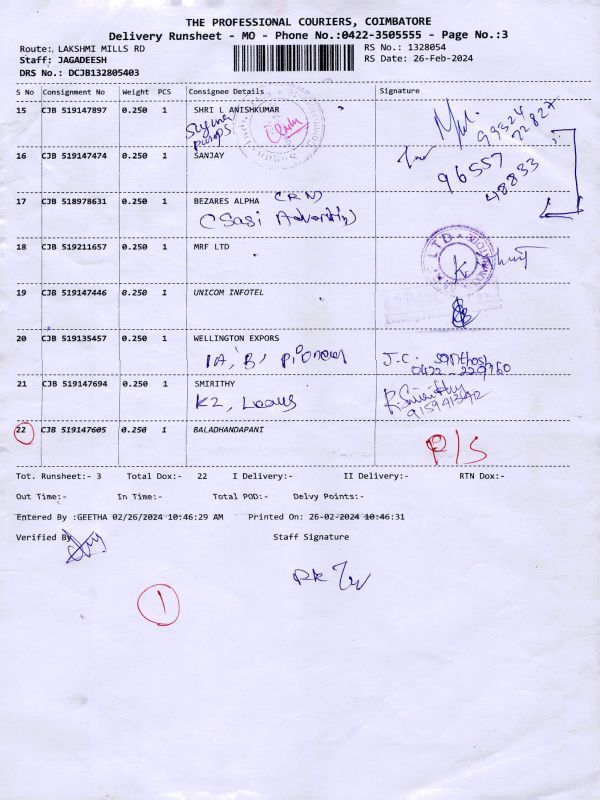 THE PROFESSIONAL COURIERS, COIMBATORE
Delivery Runsheet - MO - Phone No.:0422-3505555 - Page No.:3
Route: LAKSHMI MILLS RD
RS No.: 1328054
Staff: JAGADEESH
RS Date: 26-Feb-2024
DRS No.: DCJB132805403
S No Consignment No Weight PCS Consignee Details Signature
15 CJB 519147897 0.250 1 SHRI L ANISHKUMAR
Pumps
16 CJB 519147474 0.250 1 SANJAY
96557
48833
17 CJB 518978631 0.250 1 BEZARES ALPHA
18 CJB 519211657 0.250 1 MRF LTD
19 CJB 519147446 0.250 1 UNICOM INFOTEL
20 CJB 519135457 0.250 1 WELLINGTON EXPORS
1A, B, Pioneer
J.C. Santhosh
21 CJB 519147694 0.250 1 SMIRITHY
K2,
R. Smirithy
22 CJB 519147605 0.250 1 BALADHANDAPANI
R/S
Tot. Runsheet:- 3 Total Dox:- 22 I Delivery:- II Delivery:- RTN Dox:-
Out Time:- In Time:- Total POD:- Delvy Points:-
Entered By :GEETHA 02/26/2024 10:46:29 AM Printed On: 26-02-2024 10:46:31
Verified By
Staff Signature
1